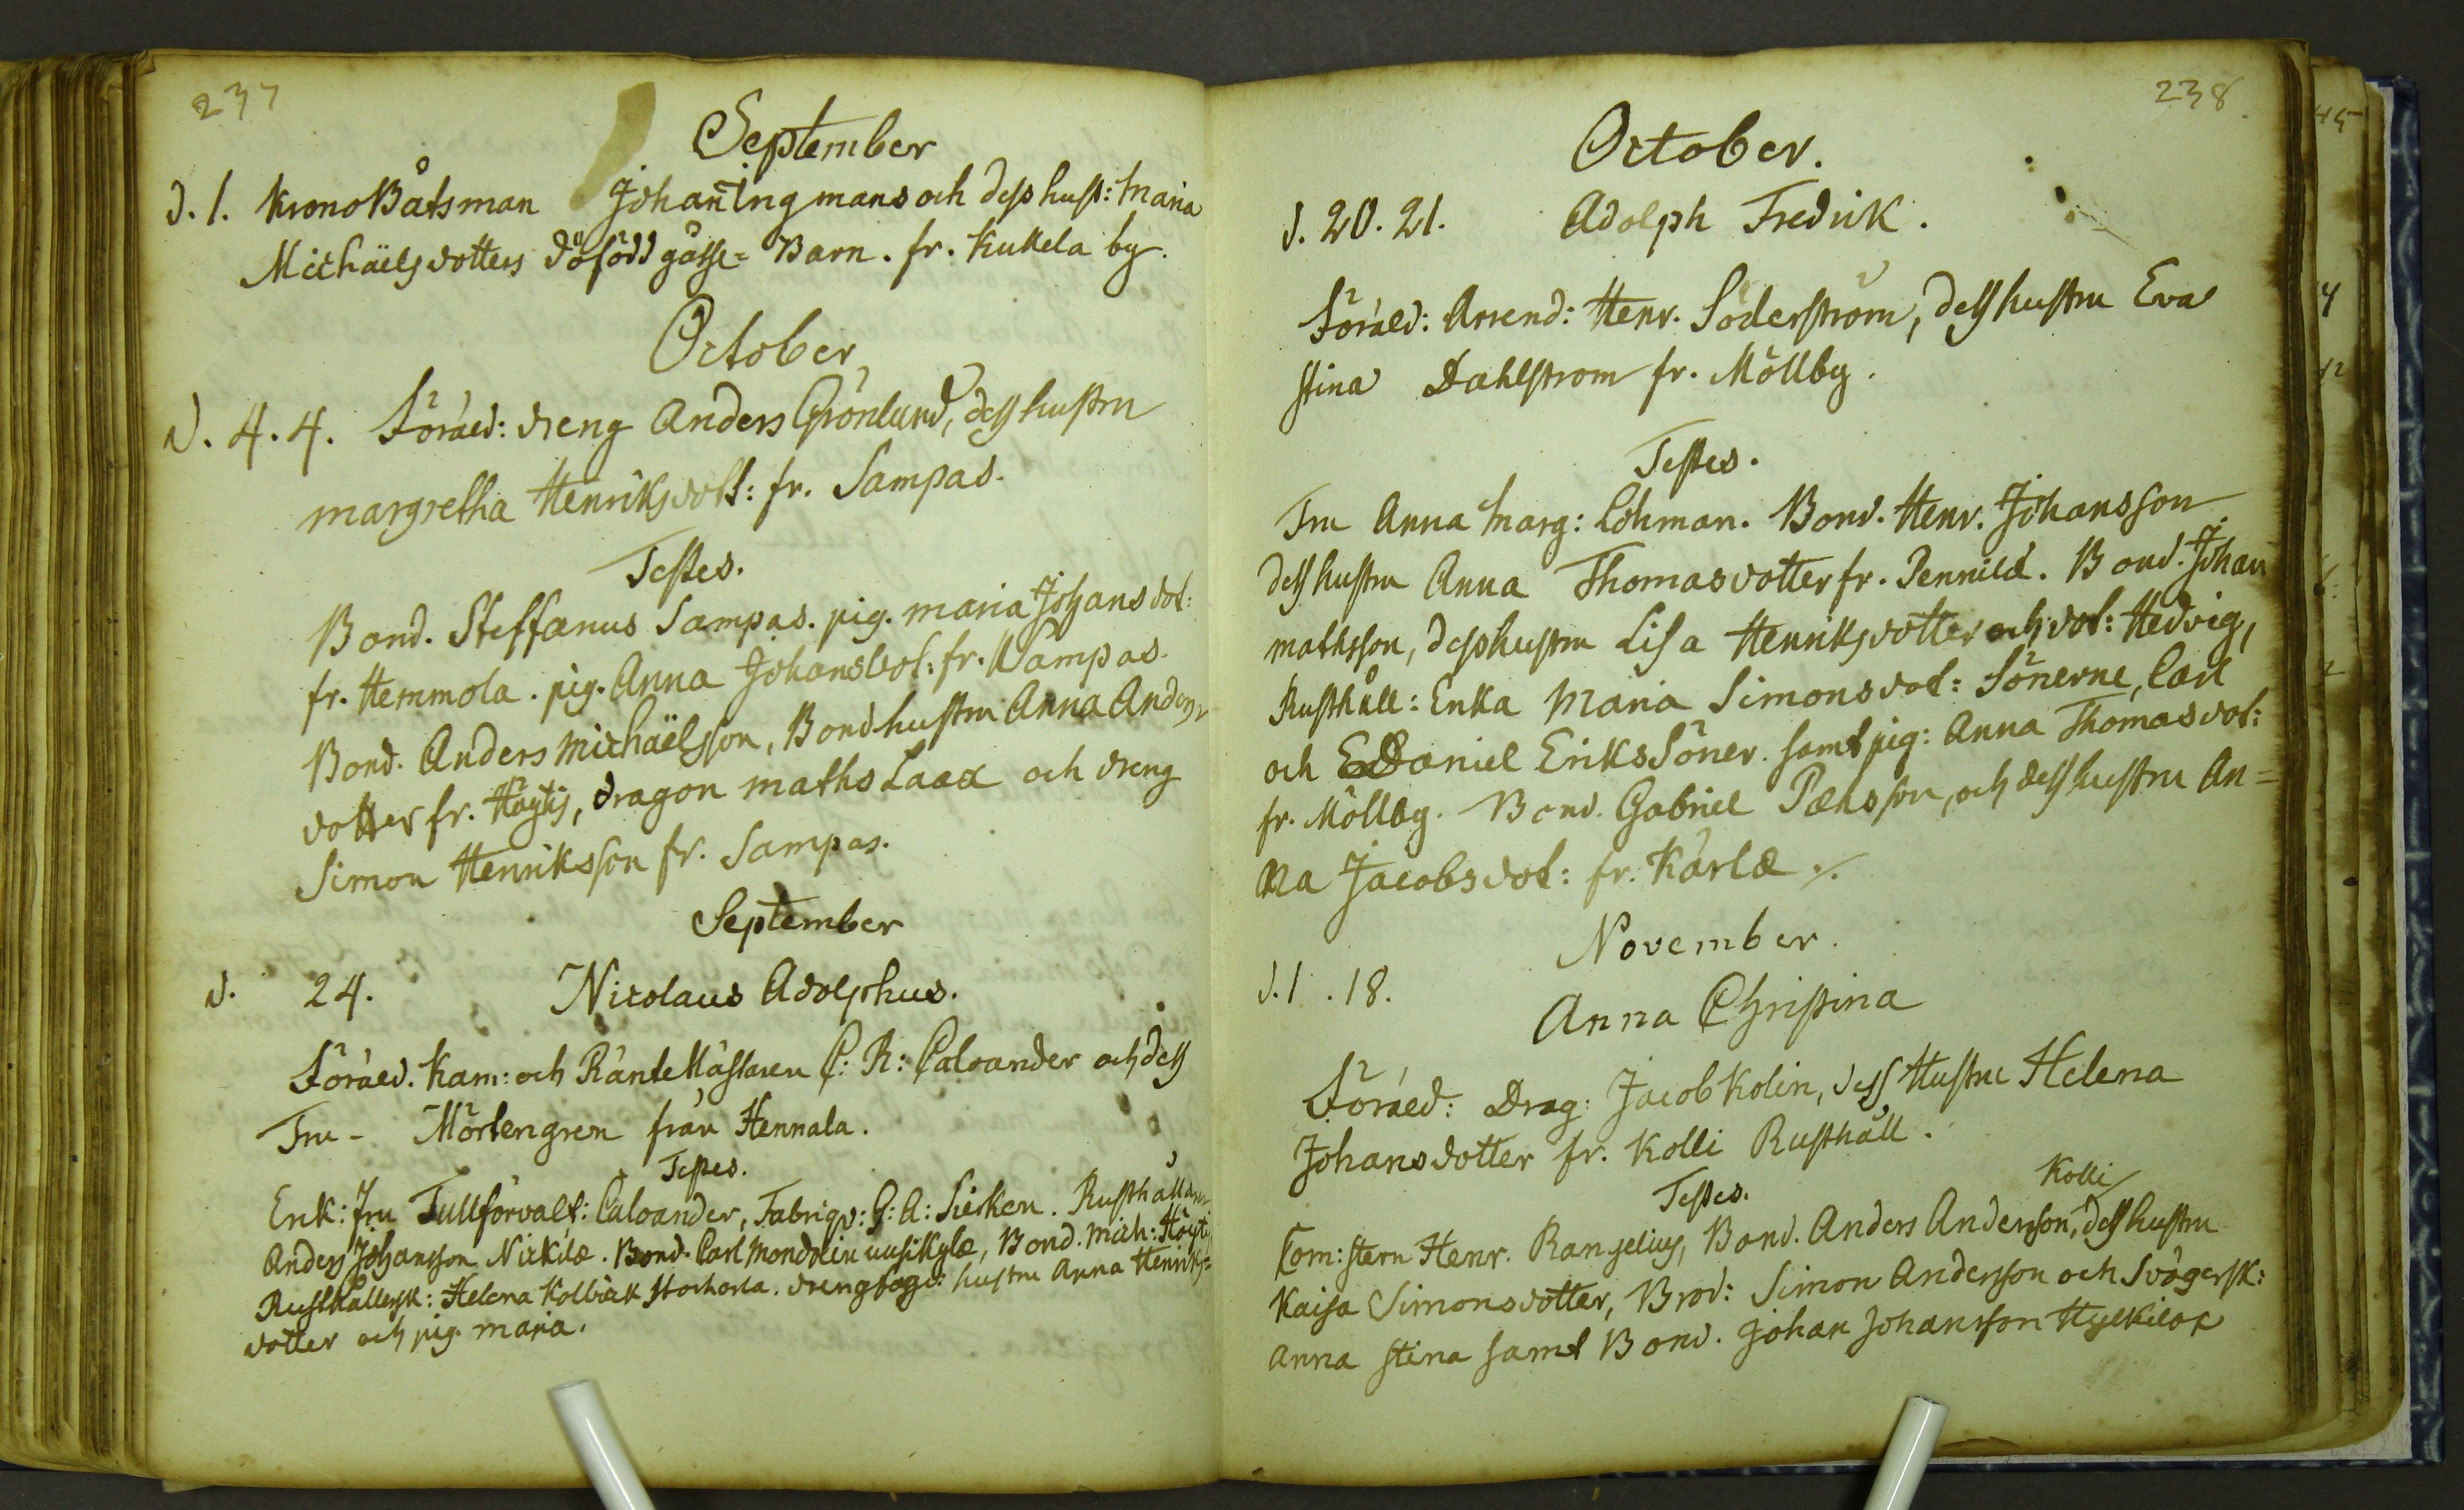 237
September
d. 1. KronoBåtsman Johan Ingmans och dess hust: Maria
Michäelsdotters döfödd gåsse=Barn. fr. Kukela by.
October
d. 4. 4. Föräld: dreng Anders Grönlund, dess hustru
margretha Henriksdott: fr. Sampas.
Testes.
Bond. Steffanus Sampas. pig. maria Johansdot:
fr. Hemmola. pig. Anna Johansdot: fr. Sampas.
Bond. Anders Michäelsson, Bondhustru Anna Anders
dotter fr. Höytis, dragon maths Laax och dreng
Simon Henriksson fr. Sampas.
September
d. 24. Nicolaus Adolphus.
Föräld. Kam: och RänteMästaren C: R: Caloander och dess
Fru - Mörtengren från Hennala.
Testes.
Enk: Fru Tullförvalt: Caloander, Fabriqv: G: A: Sierken. Rusthållaren
Anders Johansson Nickilæ. Bond. Carl Mondolin uusikylæ, Bond. Mich: Höyti
Rusthållersk: Helena Kollbäck Storhorla. drengfogd: hustru Anna Henriks=
dotter och pig. maria.
238.
October.
d. 20. 21. Adolph Fredrik.
Föräld: Arrend: Henr. Söderström, dess hustru Eva
stina Dahlstrom fr. Möllby.
Testes.
Fru Anna Marg: Löhman. Bond. Henr. Johansson
dess hustru Anna Thomasdotter fr. Pennilä. Bond. Johan
mathsson, dess hustru Lisa Henriksdotter och dot: Hedvig,
Rusthåll: Enka Maria Simonsdot: Sönerne, Carl
och Daniel Eriks Söner. samt pig: Anna Thomasdot:
fr. Möllby. Bond. Gabriel Pæhsson, och dess hustru An=
na Jacobsdot: fr. Kärlæ ./.
November.
d. 1. 18.
Anna Christina
Föräld: Drag: Jacob Kolin, dess Hustru Helena
Johansdotter fr. Kolli Rusthåll.
Testes.
Kolli
Com: stern Henr. Rangelius, Bond. Anders Andersson, dess hustru
Kaisa Simonsdotter, Brod: Simon Andersson och Svägersk:
Anna stina samt Bond. Johan Johansson Hylkilæ